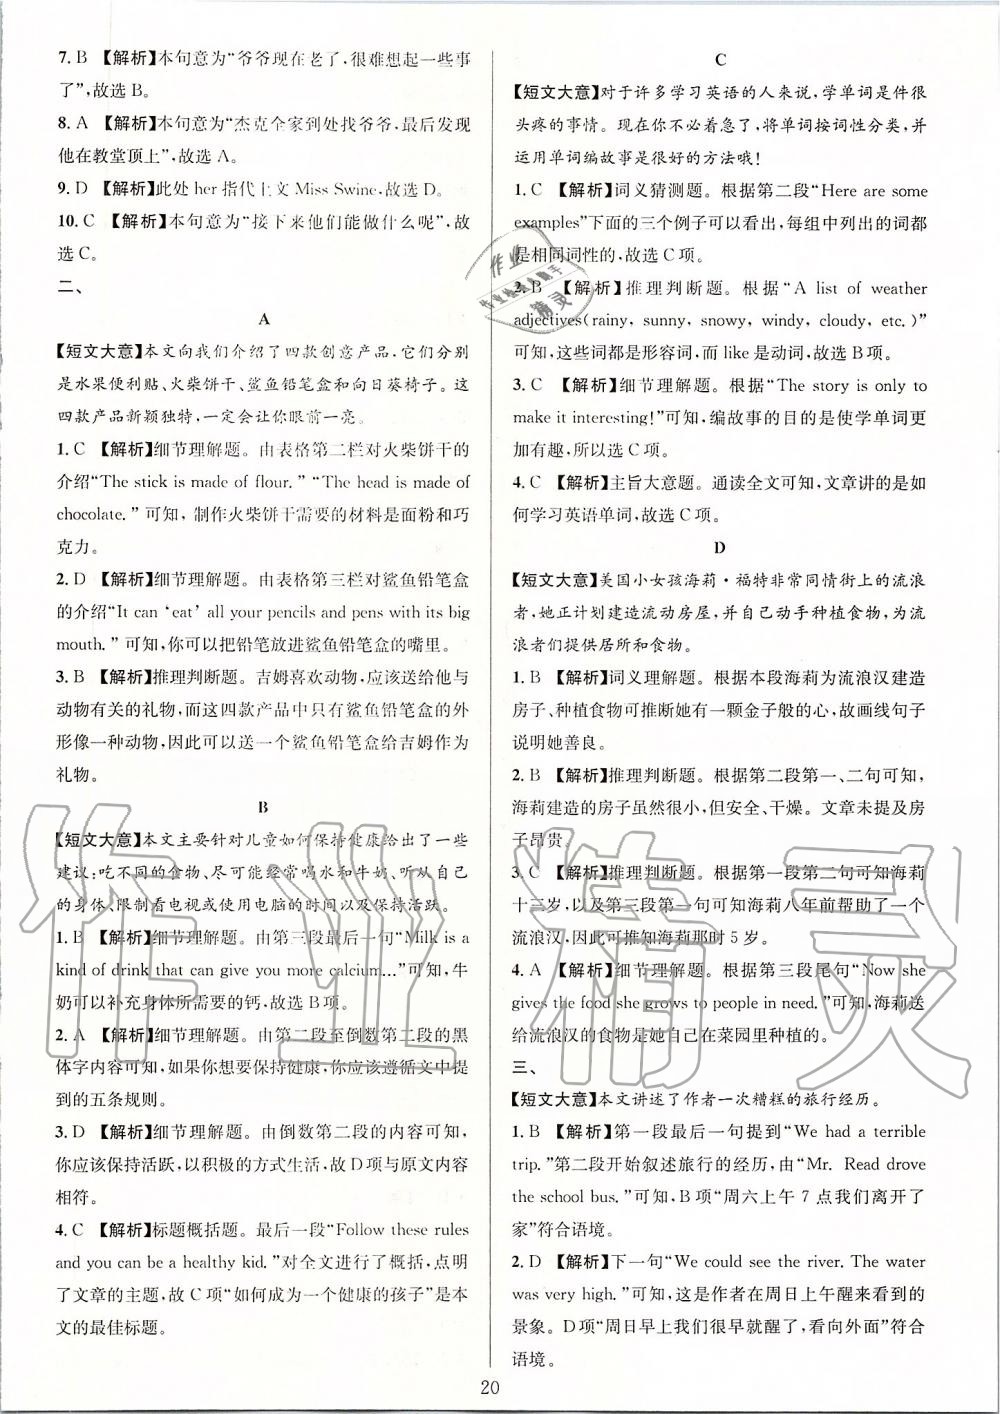 7. B 【解析】本句意为“爷爷现在老了,很难想起一些事
了”,故选 B。
8. A 【解析】本句意为“杰克全家到处找爷爷,最后发现
他在教堂顶上”,故选 A。
9. D 【解析】此处 her 指代上文 Miss Swine,故选 D。
10. C 【解析】本句意为“接下来他们能做什么呢”,故
选 C。
二、
A
【短文大意】本文向我们介绍了四款创意产品,它们分别
是水果便利贴、火柴饼干、鲨鱼铅笔盒和向日葵椅子。这
四款产品新颖独特,一定会让你眼前一亮。
1. C 【解析】细节理解题。由表格第二栏对火柴饼干的
介绍“The stick is made of flour.” “The head is made of
chocolate.” 可知, 制作火柴饼干需要的材料是面粉和巧
克力。
2. D 【解析】细节理解题。由表格第三栏对鲨鱼铅笔盒
的介绍“It can ‘eat’ all your pencils and pens with its big
mouth.” 可知,你可以把铅笔放进鲨鱼铅笔盒的嘴里。
3. B 【解析】推理判断题。吉姆喜欢动物,应该送给他与
动物有关的礼物,而这四款产品中只有鲨鱼铅笔盒的外
形像一种动物,因此可以送一个鲨鱼铅笔盒给吉姆作为
礼物。
B
【短文大意】本文主要针对儿童如何保持健康给出了一些
建议:吃不同的食物、尽可能经常喝水和牛奶、听从自己
的身体、限制看电视或使用电脑的时间以及保持活跃。
1. B 【解析】细节理解题。由第三段最后一句“Milk is a
kind of drink that can give you more calcium...”可知,牛
奶可以补充身体所需要的钙,故选 B 项。
2. A 【解析】细节理解题。由第二段至倒数第二段的黑
体字内容可知,如果你想要保持健康,你应该遵循文中提
到的五条规则。
3. D 【解析】细节理解题。由倒数第二段的内容可知,
你应该保持活跃,以积极的方式生活,故 D 项与原文内容
相符。
4. C 【解析】标题概括题。最后一段“Follow these rules
and you can be a healthy kid.”对全文进行了概括,点明
了文章的主题,故 C 项“如何成为一个健康的孩子”是本
文的最佳标题。
C
【短文大意】对于许多学习英语的人来说,学单词是件很
头疼的事情。现在你不必着急了,将单词按词性分类,并
运用单词编故事是很好的方法哦!
1. C 【解析】词义猜测题。根据第二段“Here are some
examples”下面的三个例子可以看出,每组中列出的词都
是相同词性的,故选 C 项。
2. B 【解析】推理判断题。根据“A list of weather
adjectives(rainy, sunny, snowy, windy, cloudy, etc.)”
可知,这些词都是形容词,而 like 是动词,故选 B 项。
3. C 【解析】细节理解题。根据“The story is only to
make it interesting!”可知,编故事的目的是使学单词更
加有趣,所以选 C 项。
4. C 【解析】主旨大意题。通读全文可知,文章讲的是如
何学习英语单词,故选 C 项。
D
【短文大意】美国小女孩海莉·福特非常同情街上的流浪
者,她正计划建造流动房屋,并自己动手种植食物,为流
浪者们提供居所和食物。
1. B 【解析】词义理解题。根据本段海莉为流浪汉建造
房子、种植食物可推断她有一颗金子般的心,故画线句子
说明她善良。
2. B 【解析】推理判断题。根据第二段第一、二句可知,
海莉建造的房子虽然很小,但安全、干燥。文章未提及房
子昂贵。
3. C 【解析】推理判断题。根据第一段第二句可知海莉
十三岁,以及第三段第一句可知海莉八年前帮助了一个
流浪汉,因此可推知海莉那时 5 岁。
4. A 【解析】细节理解题。根据第三段尾句“Now she
gives the food she grows to people in need.”可知,海莉送
给流浪汉的食物是她自己在菜园里种植的。
三、
【短文大意】本文讲述了作者一次糟糕的旅行经历。
1. B 【解析】第一段最后一句提到“We had a terrible
trip.”第二段开始叙述旅行的经历,由“Mr. Read drove
the school bus.”可知,B 项“周六上午 7 点我们离开了
家”符合语境。
2. D 【解析】下一句“We could see the river. The water
was very high.”可知,这是作者在周日上午醒来看到的
景象。D 项“周日早上我们很早就醒了,看向外面”符合
语境。
20
作业精灵